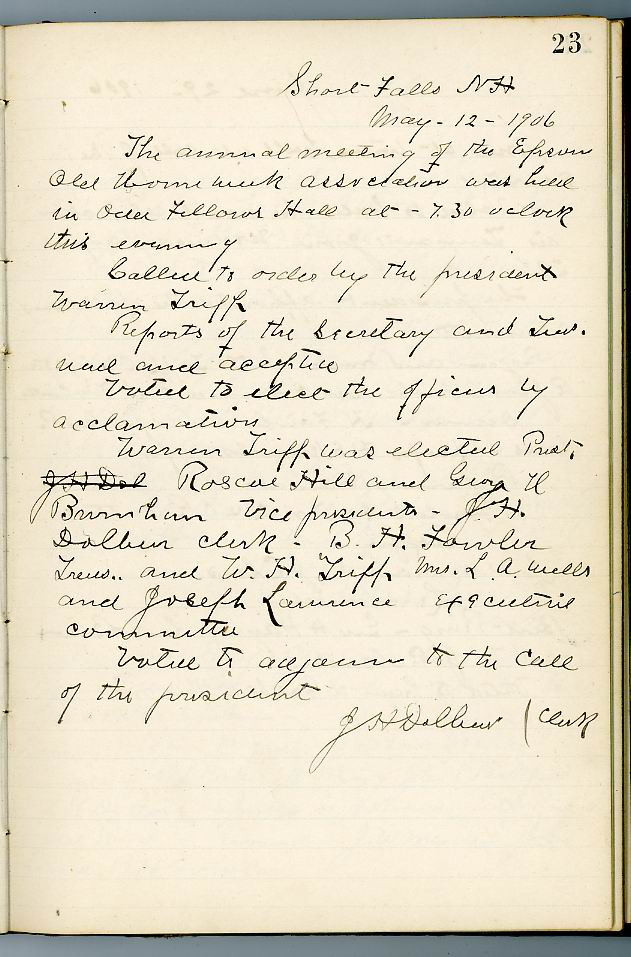 23
Short Falls NH
May - 12 - 1906
The annual meeting of the Epsom
Old Home week association was held
in Odd Fellows Hall at - 7.30 oclock
this evening
Called to order by the president
Warren Tripp
Reports of the Secretary and Treas.
read and accepted
Voted to elect the officers by
acclamation
Warren Tripp was elected Prest.
J H Dol Roscoe Hill and Geo H
Burnham Vice presidents - J. H.
Dolbeer clerk - B. H. Fowler
Treas.. and W. H. Tripp Mrs. L. A. Wells
and Joseph Lawrence executive
committee
Voted to adjourn to the call
of the president
J H Dolbeer (Clerk